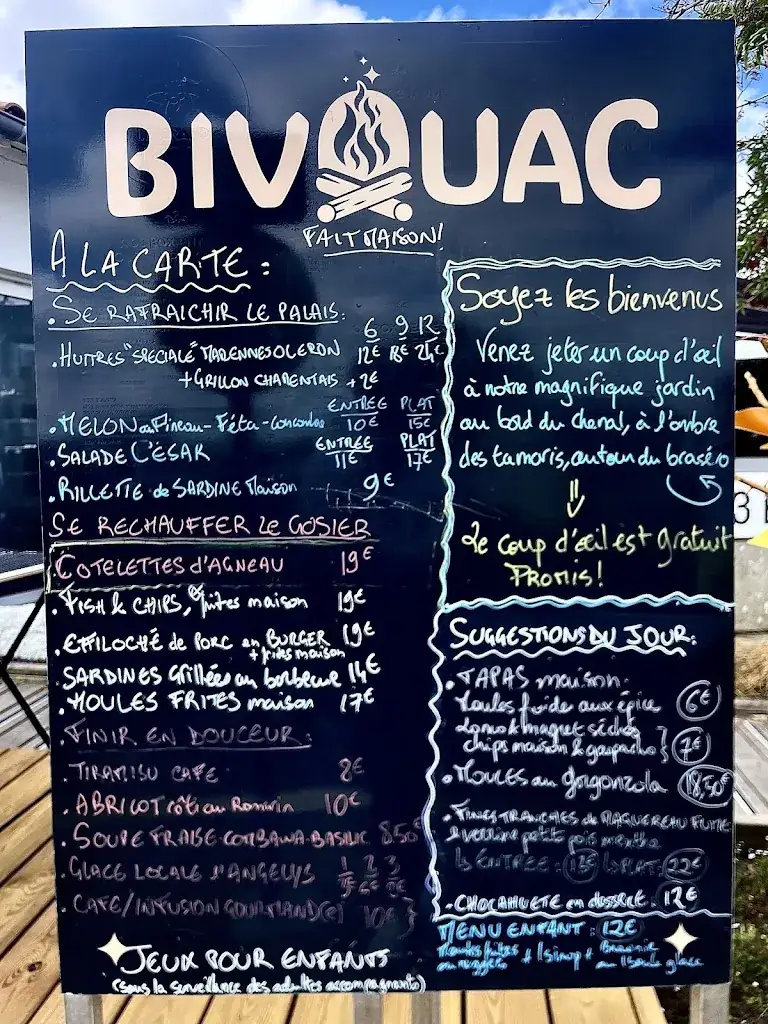 BIVOUAC
FAIT MAISON!
A LA CARTE :
. SE RAFRAICHIR LE PALAIS :
6 9 12
. HUITRES "SPECIALE" MARENNES OLERON 12€ 18€ 24€
+ GRILLON CHARENTAIS + 2€
ENTRÉE PLAT
. MELON au Pineau - Féta - Concombre 10€ 15€
ENTRÉE PLAT
. SALADE CÉSAR 11€ 17€
. RILLETTE de SARDINE Maison 9€
SE RECHAUFFER LE GOSIER
COTELETTES d'AGNEAU 19€
. FISH & CHIPS, frites maison 19€
. EFFILOCHÉ de PORC en BURGER 19€
+ frites maison
. SARDINES Grillées au barbecue 14€
. MOULES FRITES maison 17€
. FINIR EN DOUCEUR :
. TIRAMISU CAFE 8€
. ABRICOT rôti au Romarin 10€
. SOUPE FRAISE-COMBAWA-BASILIC 8.50€
. GLACE LOCALE D'ANGELYS 1 2 3
6€
. CAFE/INFUSION GOURMAND(e) 10€
JEUX POUR ENFANTS
(sous la surveillance des adultes accompagnants)
Soyez les bienvenus
Venez jeter un coup d'œil
à notre magnifique jardin
au bord du chenal, à l'ombre
des tamaris, autour du braséro
⇓
Le coup d'œil est gratuit
PROMIS!
SUGGESTIONS DU JOUR :
. TAPAS maison :
Moules froide aux épice 6€
Lomo & magret séchés
chips maison & gaspacho } 7€
. MOULES au gorgonzola 18,50€
. FINES TRANCHES de MAQUEREAU FUMÉ
& verrine petits pois menthe
↳ ENTRÉE : 13€ ↳ PLAT : 22€
. CHOCAHUETE en dessert : 12€
MENU ENFANT : 12€
+ 1 sirop +